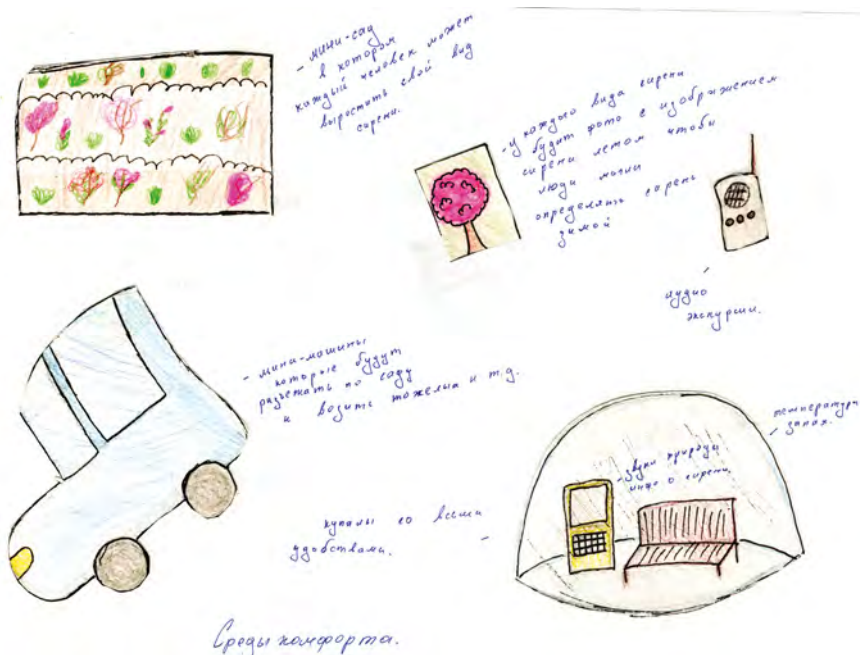 - мини-сад
в котором
каждый человек может
выростить свой вид
сирени.
- у каждого вида сирени
будит фото с изображением
сирени летом чтобы
люди могли
определять сирень
зимой
аудио
экскурсии.
- мини-машины
которые будут
разъежать по саду
и возить пожелых и т.д.
купалы со всеми
удобствами.
температура
запах.
- звуки природы
инфо о сирени.
Среды комфорта.